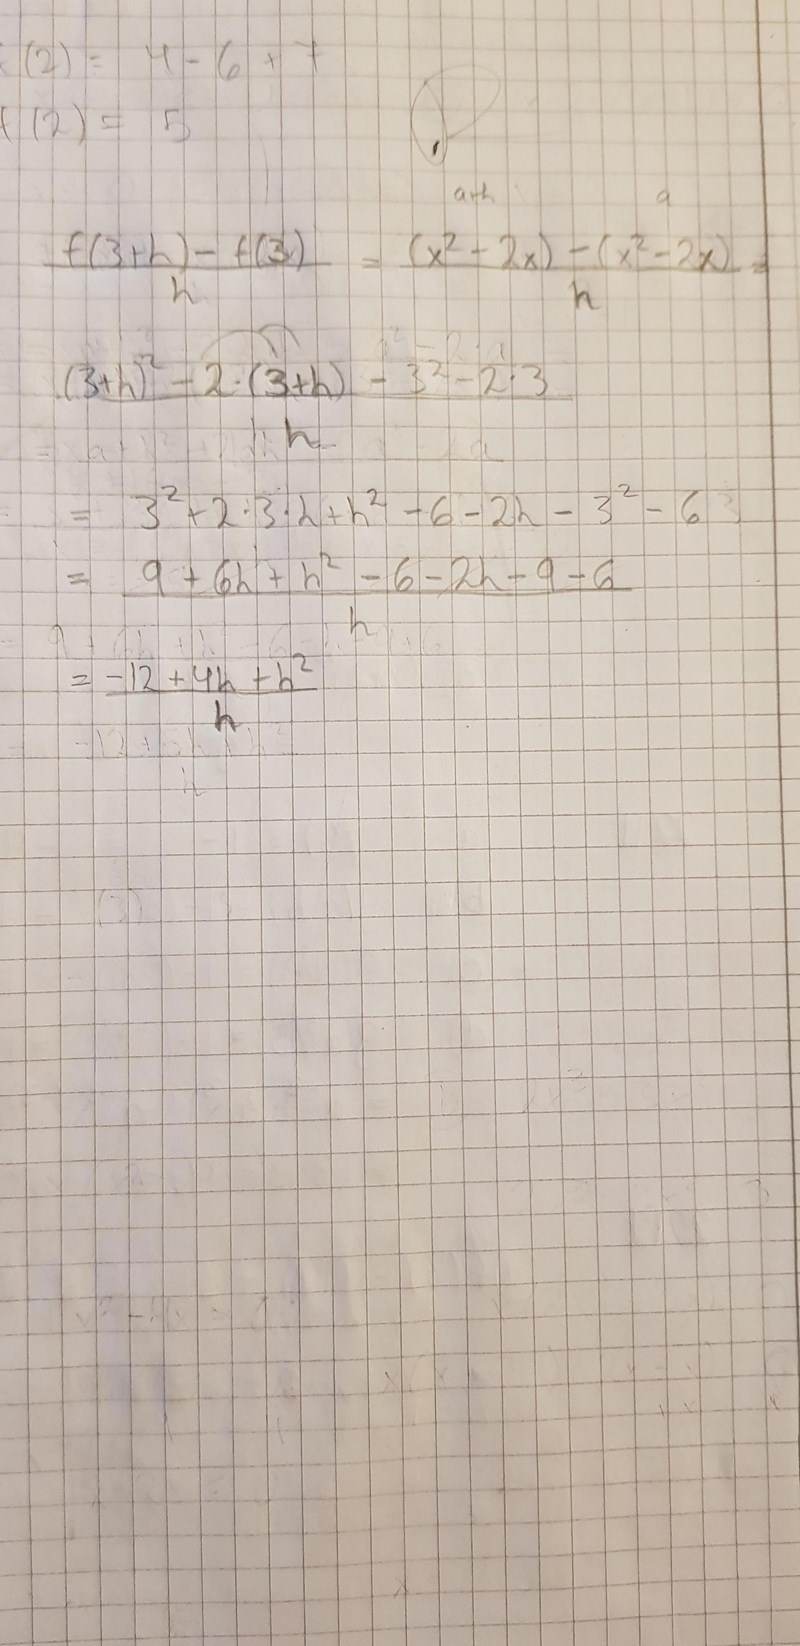 (2) = 4 - 6 + 7
f(2) = 5
a+h a
f(3+h) - f(3) / h = (x² - 2x) - (x² - 2x) / h =
(3+h)² - 2·(3+h) - 3² - 2·3 / h
= 3² + 2·3·h + h² - 6 - 2h - 3² - 6
= 9 + 6h + h² - 6 - 2h - 9 - 6 / h
= -12 + 4h + h² / h